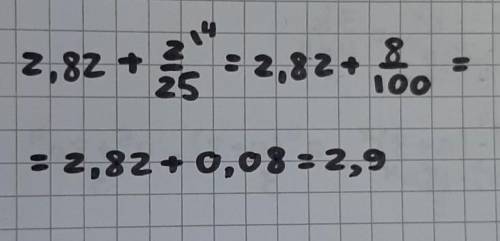 2,82 + 2/25 ^(\4 = 2,82 + 8/100 =
= 2,82 + 0,08 = 2,9